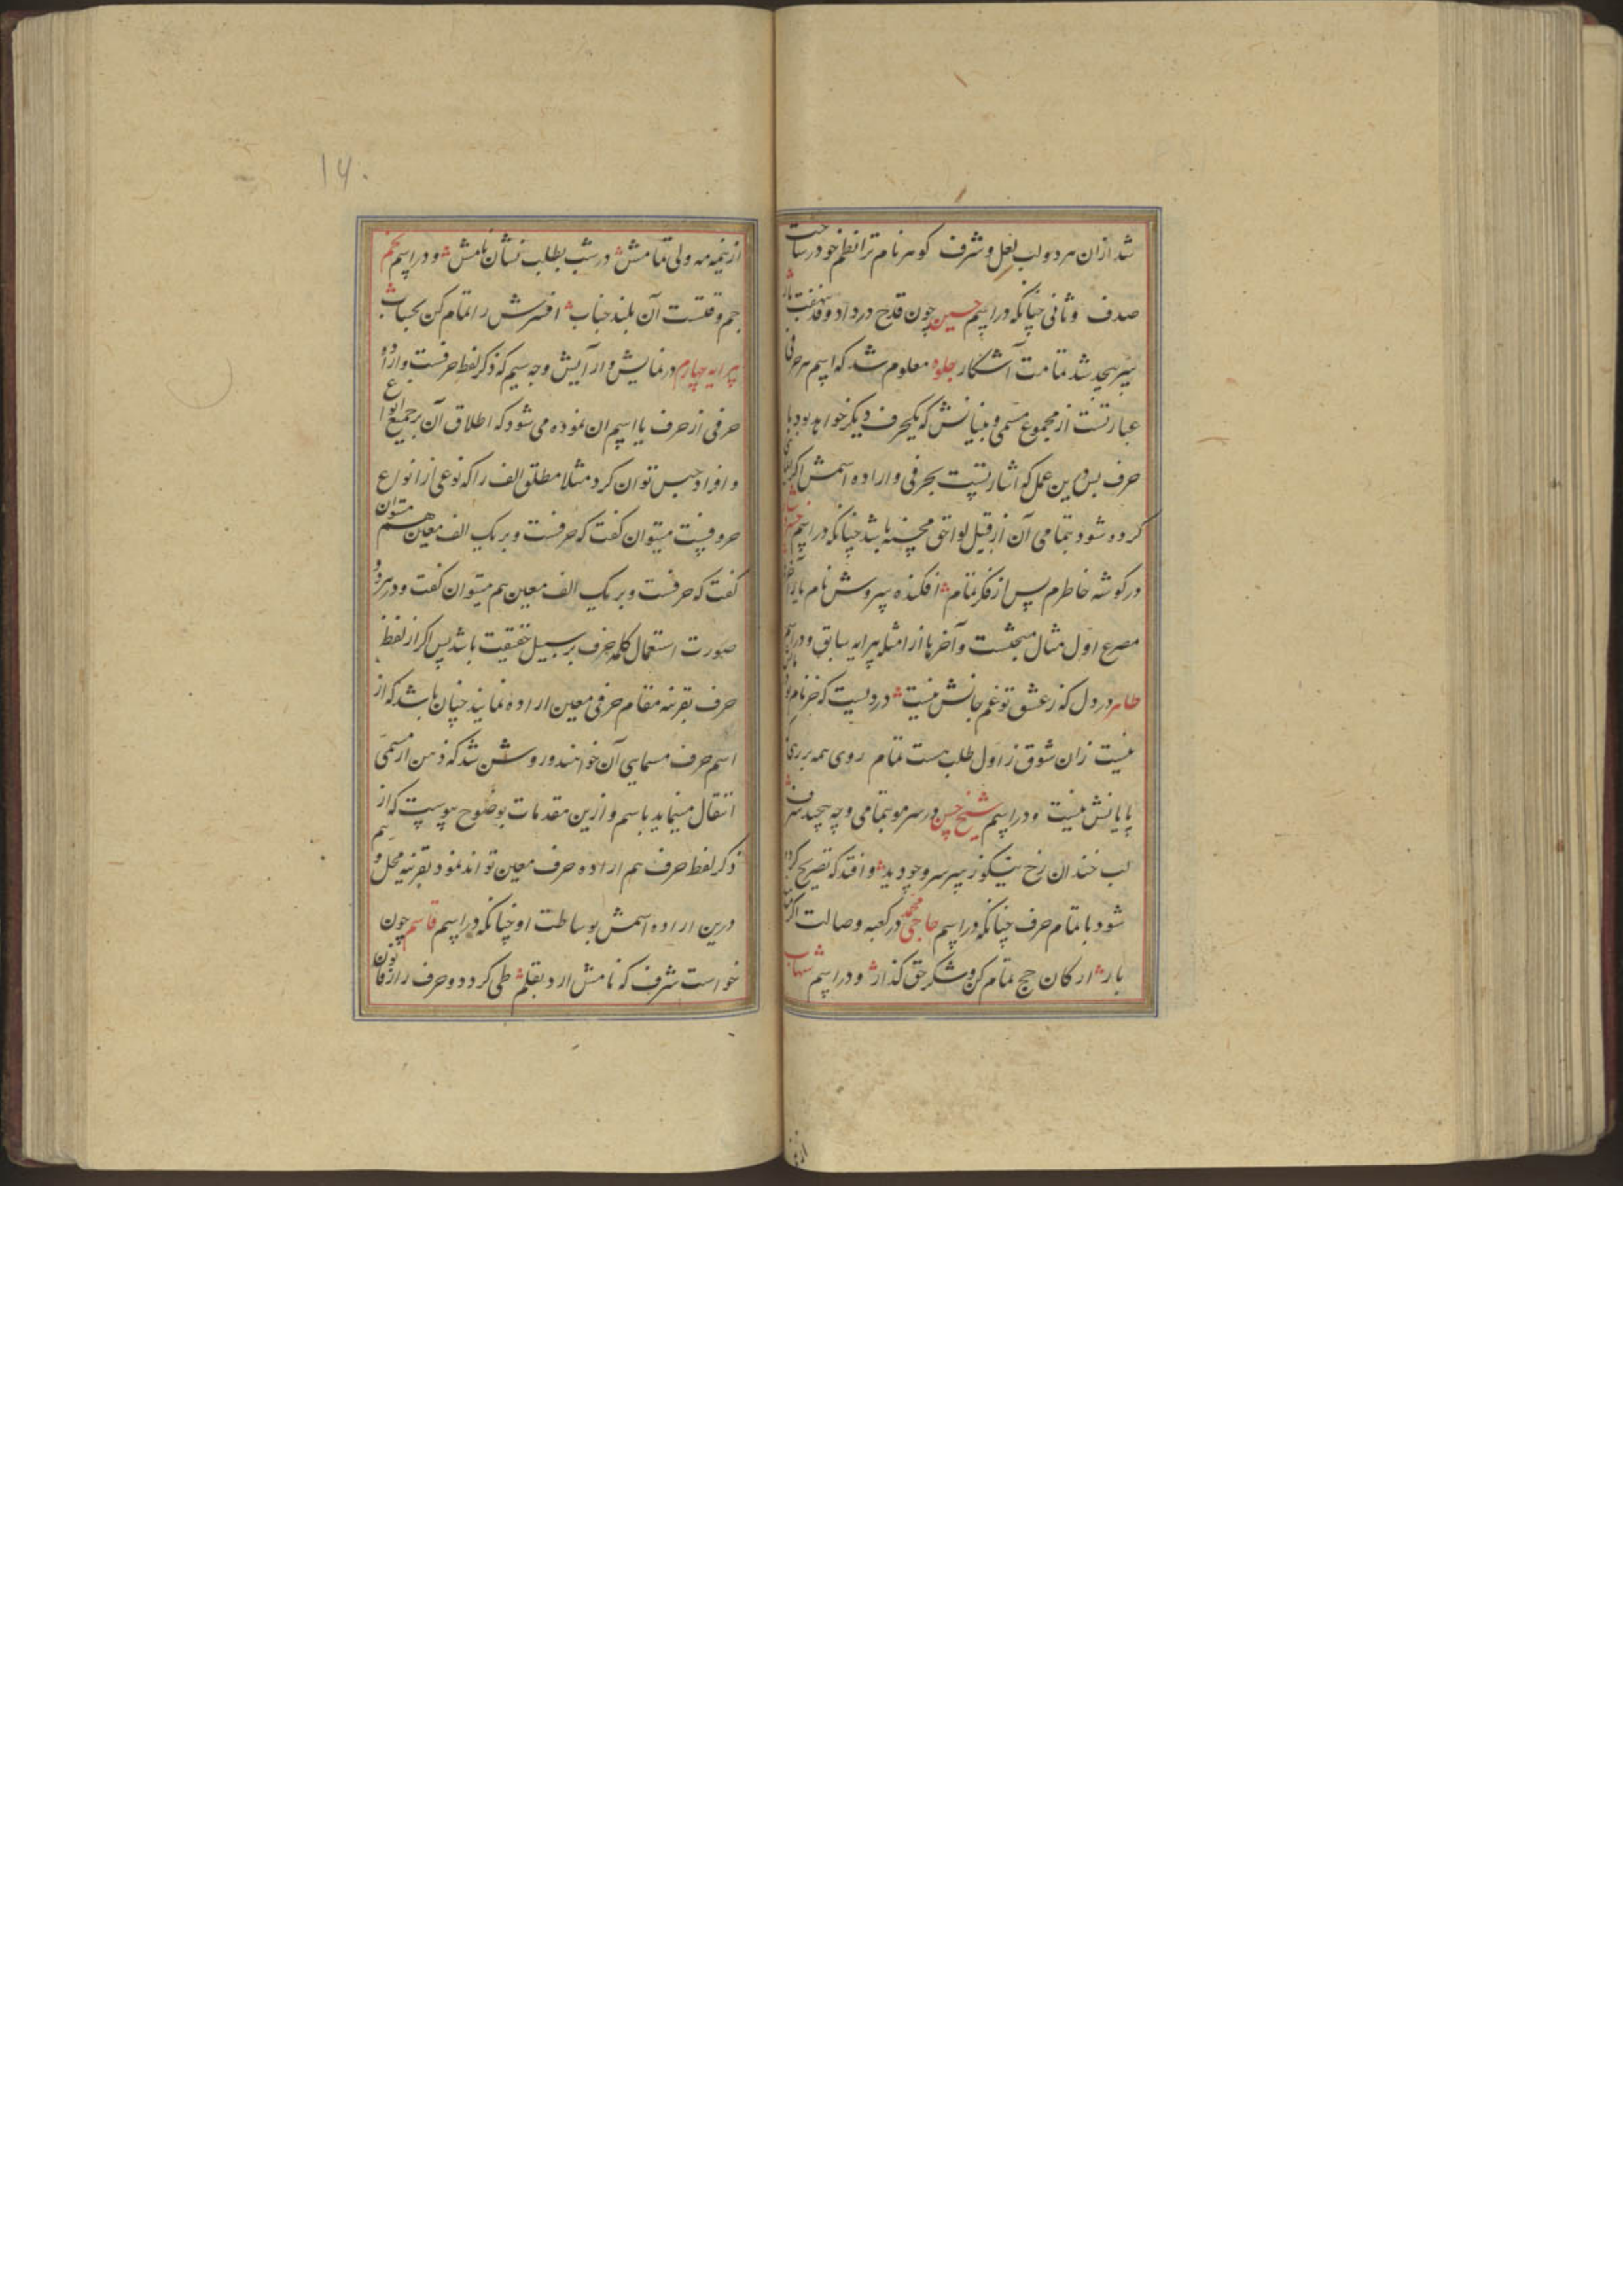 شد ازان هر دو لب لعل و شرف کوهر نام ترا نظم خود در ساخت
صدف و ثانی چنانکه در اسم حسین چون قدح درد داد وقد نهفت
سر بیحد شد تمامت آشکار جلوه معلوم شد که اسم هر حرفی
عبارتست از مجموع مسمی و بنیانش که یکحرف دیکر خواهد بود با
حرف پس درین عمل که اشارتست بحرفی و اراده اسمش اکر
کرده شود بتمامی آن از قبیل لواحق محسنه باشد چنانکه در اسم
در کوشه خاطرم پس از فکر تمام افکنده سروش نام
مصرع اول مثال مبحثست و آخرها از امثله پیرایه سابق و در اسم
طاهر در دل که ز عشق تو غم جانش نیست دردیست که جز نام
نیست زان شوق ز اول طلب هست تمام روی همه بر
پایانش نیست و در اسم شیخ حسن در سر مو بتمامی و چه بیحد شرف
لب خندان رخ نیکو ز پس سر و چو دید و افتد که تصریح کرده
شود با تمام حرف چنانکه در اسم حاجی محمد در کعبه وصالت اکر
بار ارکان حج تمام کن و شکر حق کذار و در اسم شهاب
از نیمه مه ولی تمامش در شب بطلب نشان نامش و در اسم نجم
جم وقتست آن بلند جناب افسرش را تمام کن بحساب
پیرایه چهارم در نمایش و آرایش وجه سیم که ذکر لفظ حرفست و اراده
حرفی از حرف یا اسم ان نموده می شود که اطلاق آن بر جمیع انواع
و افراد جنس توان کرد مثلا مطلق الف را که نوعی از انواع
حروفست میتوان کفت که حرفست و بر یک الف معین هم میتوان
کفت که حرفست و بر یک الف معین هم میتوان کفت و در هر دو
صورت استعمال کلمه حرف بر سبیل حقیقت باشد پس اکر از لفظ
حرف بقرینه مقام حرفی معین اراده نمایند چنان باشد که از
اسم حرف مسمای آن خواهند و روشن شد که ذهن از مسمی
انتقال مینماید باسم و ازین مقدمات بوضوح پیوست که از
ذکر لفظ حرف هم اراده حرف معین تواند نمود بقرینه محل و هم
درین اراده اسمش بوساطت او چنانکه در اسم قاسم چون
خواست شرف که نامش ارد بقلم طی کرد دو حرف را از قانون